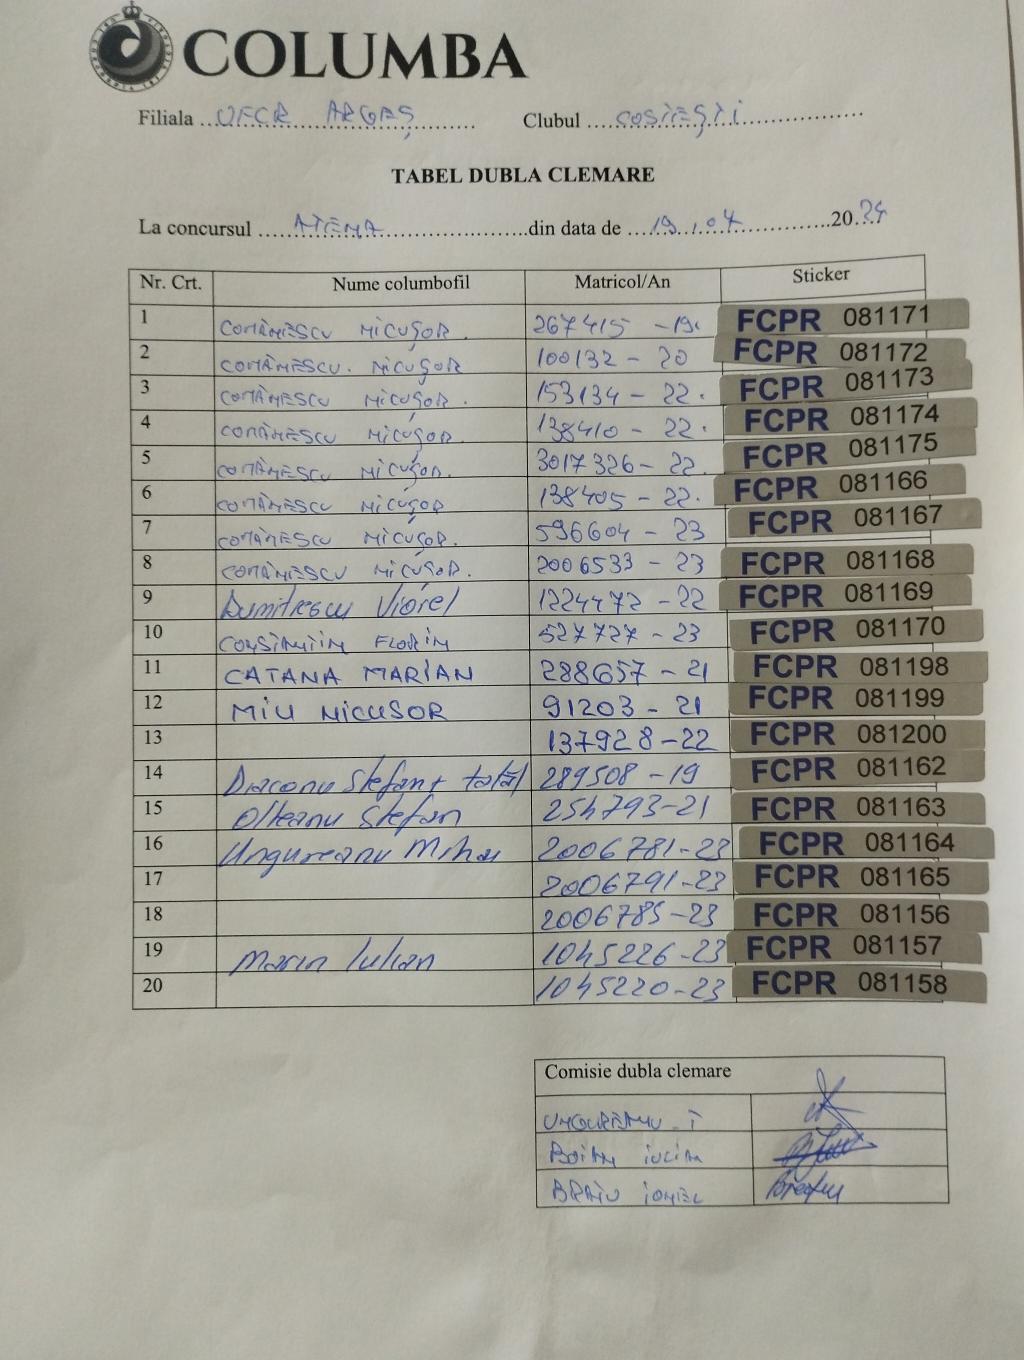 COLUMBA
Filiala ...UFCR ARGEȘ... Clubul ...COSTEȘTI...
TABEL DUBLA CLEMARE
La concursul ...ATENA...din data de ...19.04...20.24
Nr. Crt. Nume columbofil Matricol/An Sticker
1 COMĂNESCU NICUȘOR. 267415 -19. FCPR 081171
2 COMĂNESCU. NICUȘOR 100132 - 20 FCPR 081172
3 COMĂNESCU NICUȘOR. 153134 - 22. FCPR 081173
4 COMĂNESCU NICUȘOR. 138410 - 22. FCPR 081174
5 COMĂNESCU NICUȘOR. 3017326 - 22. FCPR 081175
6 COMĂNESCU NICUȘOR 138405 - 22. FCPR 081166
7 COMĂNESCU NICUȘOR. 596604 - 23 FCPR 081167
8 COMĂNESCU NICUȘOR. 2006533 - 23 FCPR 081168
9 Dumitrescu Viorel 1224472 - 22 FCPR 081169
10 CONSTANTIN FLORIN 527727 - 23 FCPR 081170
11 CATANA MARIAN 288657 - 21 FCPR 081198
12 MIU NICUSOR 91203 - 21 FCPR 081199
13 137928-22 FCPR 081200
14 Diaconu Stefan + tatăl 289508 -19 FCPR 081162
15 Olteanu Stefan 254793-21 FCPR 081163
16 Ungureanu Mihai 2006781-23 FCPR 081164
17 2006791-23 FCPR 081165
18 2006785-23 FCPR 081156
19 Marin Iulian 1045226-23 FCPR 081157
20 1045220-23 FCPR 081158
Comisie dubla clemare
UNGUREANU. I
BOIAN
BRAIU IONEL